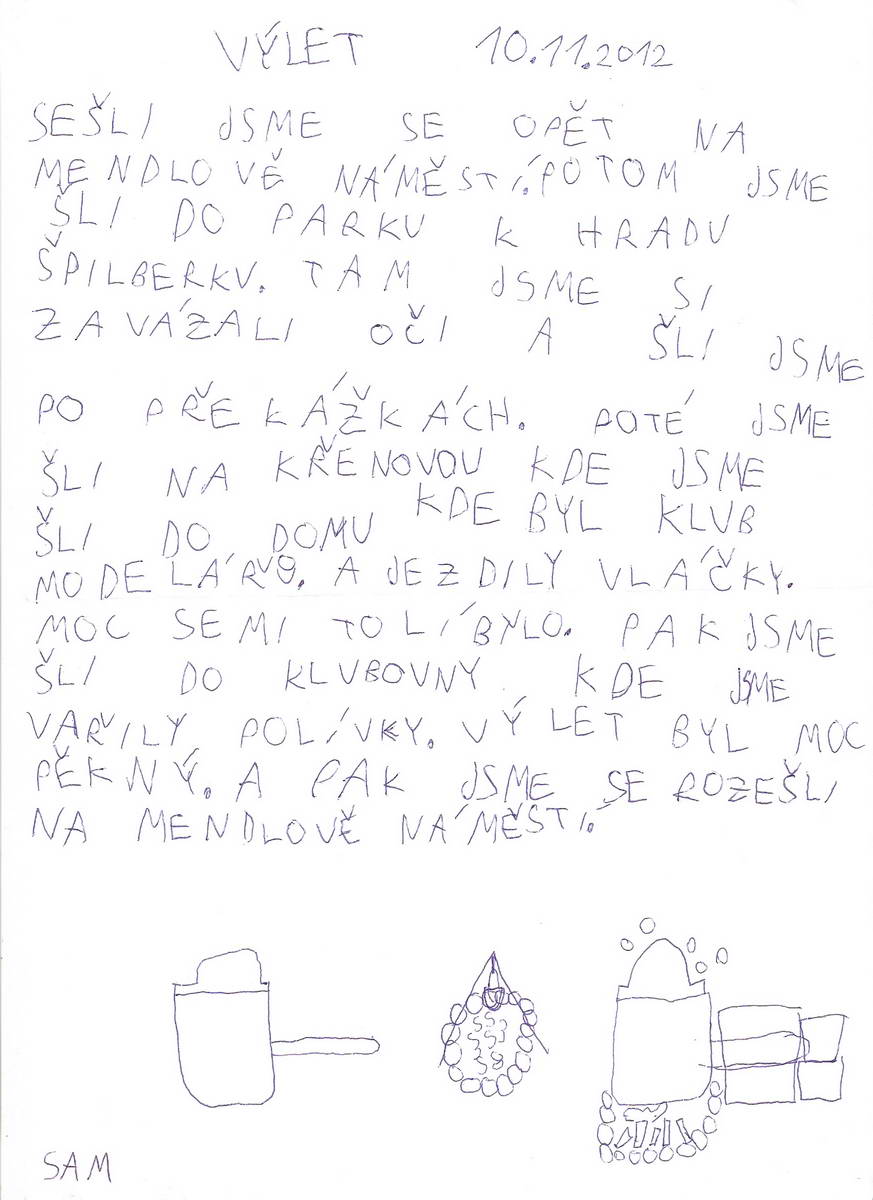 VÝLET 10.11.2012
SEŠLI JSME SE OPĚT NA
MENDLOVĚ NÁMĚSTÍ. POTOM JSME
ŠLI DO PARKU K HRADU
ŠPILBERKU. TAM JSME SI
ZAVÁZALI OČI A ŠLI JSME
PO PŘEKÁŽKÁCH. POTÉ JSME
ŠLI NA KŘENOVOU KDE JSME
ŠLI DO DOMU KDE BYL KLUB
MODELÁŘŮ. A JEZDILY VLÁČKY.
MOC SE MI TO LÍBYLO. PAK JSME
ŠLI DO KLUBOVNY, KDE JSME
VAŘILY POLÍVKY. VÝLET BYL MOC
PĚKNÝ. A PAK JSME SE ROZEŠLI
NA MENDLOVĚ NÁMĚSTÍ.
SAM